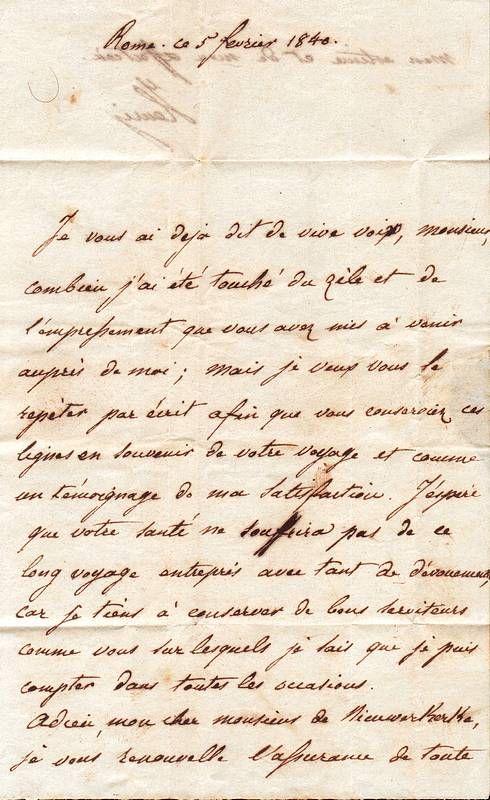 Rome. ce 5 fevrier 1840.
Je vous ai deja dit de vive voix, monsieur,
combien j'ai été touché du zèle et de
l'empressement que vous avez mis à venir
auprès de moi; mais je veux vous le
repéter par écrit afin que vous conserviez ces
lignes en souvenir de votre voyage et comme
un témoignage de ma satisfaction. J'espère
que votre santé ne souffrira pas de ce
long voyage entrepris avec tant de dévouement,
car je tiens à conserver de bons serviteurs
comme vous sur lesquels je sais que je puis
compter dans toutes les occasions.
Adieu, mon cher monsieur de Nieuwerkerke,
je vous renouvelle l'assurance de toute
mon estime et de mon affection
Henri